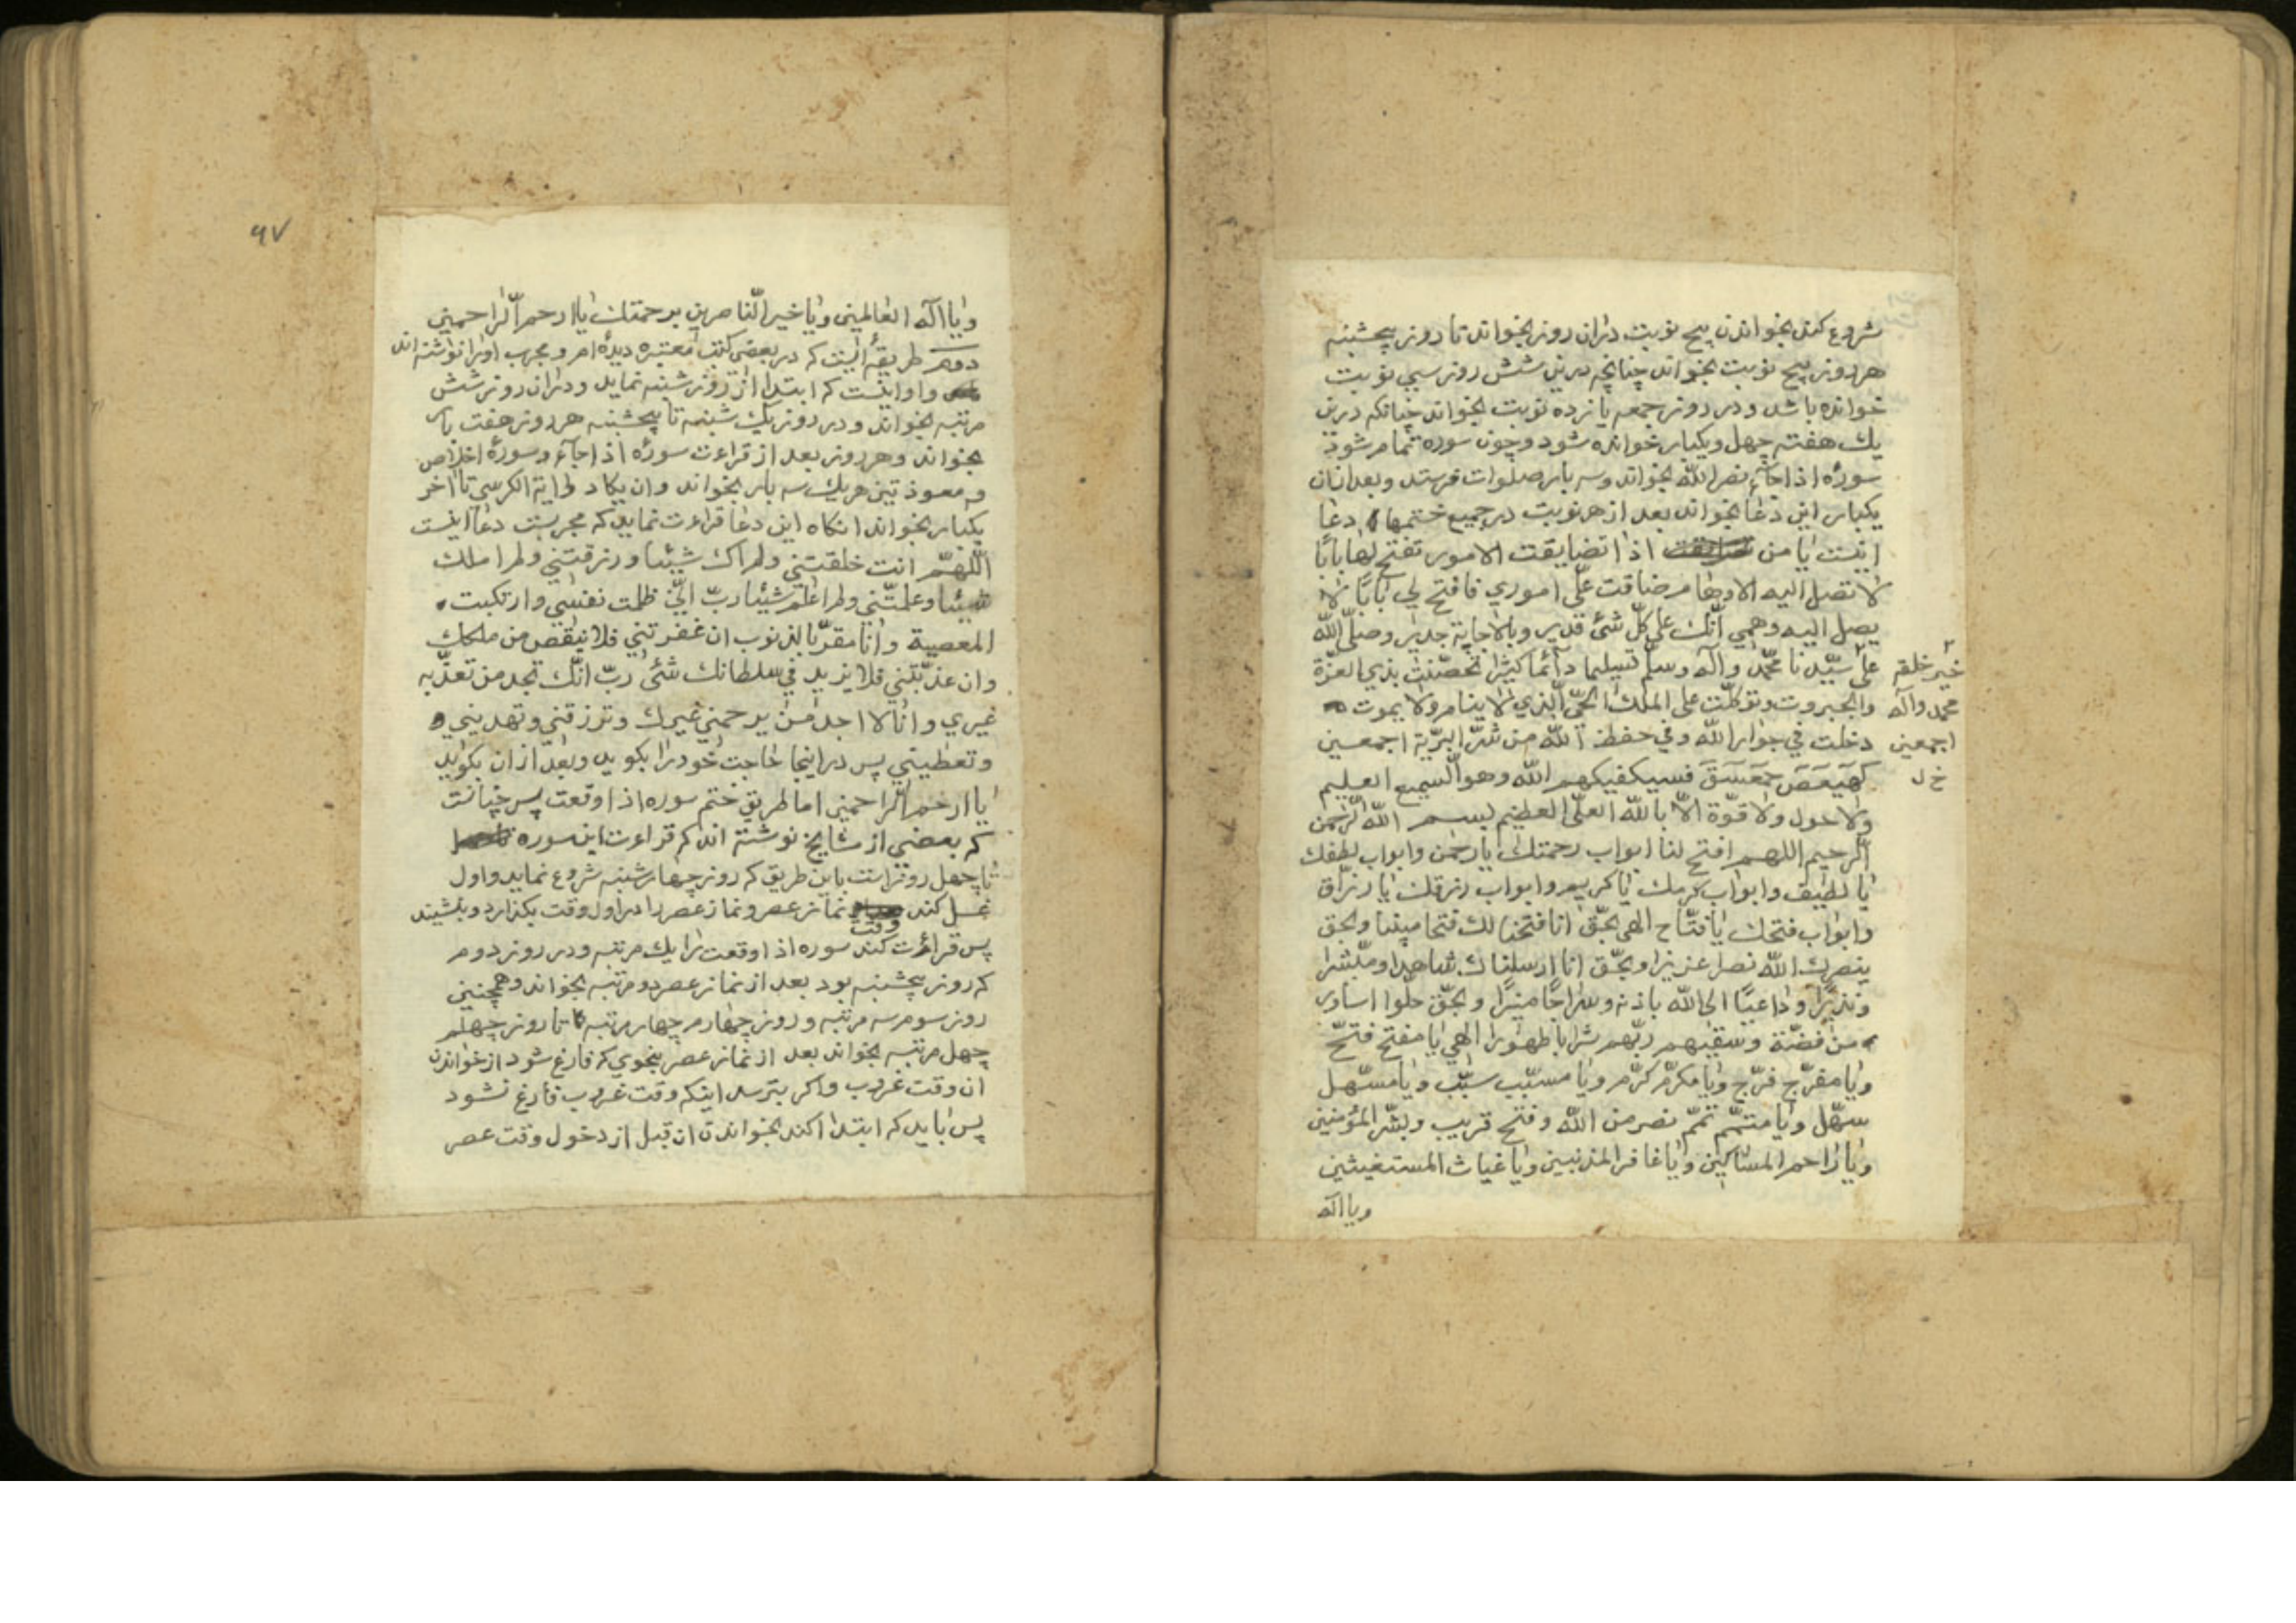 شروع کند بخواندن پنج نوبت دران روز بخواند تا روز پنجشنبه
هر روز پنج نوبت بخواند چنانچه درین شش روز سی نوبت
خوانده باشد و در روز جمعه یازده نوبت بخواند چنانکه درین
یك هفته چهل ویکبار خوانده شود و چون سوره تمام شود
سورۀ اذا جآء نصر الله بخواند و سه بار صلوات فرستد و بعد ازان
یکبار این دعا بخواند بعد از هر نوبت در جمیع ختمها دعا
اینست یا من اذا تضایقت الامور تفتح لها بابًا
لا تصل الیه الاوهام ضاقت علیّ اموری فافتح لی بابًا لا
یصل الیه وهمی انّك علی کلّ شئ قدیر وبالاجابة جدیر وصلّی الله
علی سیّدنا محمّد وآله وسلّم تسلیما دآئما کثیرا تحصّنت بذی العزّة
خیر خلقه
والجبروت وتوکلّت علی الملك الحیّ الّذی لا ینام ولا یموت
محمد وآله
دخلت فی جوار الله وفی حفظ الله من شرّ البریّة اجمعین
اجمعین
کهیعص حمعسق فسیکفیکهم الله وهو السّمیع العلیم
خ ل
ولا حول ولا قوّة الّا بالله العلیّ العظیم بسم الله الرّحمن
الرّحیم اللهم افتح لنا ابواب رحمتك یا رحمن وابواب لطفك
یا لطیف وابواب کرمك یا کریم وابواب رزقك یا رزّاق
وابواب فتحك یا فتّاح الهی بحقّ انا فتحنا لك فتحا مبینا وبحق
ینصرك الله نصرا عزیزا وبحّق انا ارسلناك شاهدا ومبّشرا
ونذیرًا وداعیًا الی الله باذنه وسراجًا منیرًا وبحقّ حلّوا اساور
من فضّة وسقیهم ربّهم شرابا طهورا الهی یا مفتح فتحّ
ویا مفرّج فرّج ویا مکرّم کرّم ویا مسبّب سبّب ویا مسّهل
سهّل ویا متمّم تمّم نصر من الله وفتح قریب وبشّر المؤمنین
ویا راحم المساکین ویا غافر المذنبین ویا غیاث المستغیثین
ویا اله
۹۷
ویا اله العالمین ویا خیر النّاصرین برحمتك یا ارحم الرّاحمین
دوم طریقه اینست که در بعضی کتب معتبره دیده ام و مجرب اورا نوشته اند
و او اینست که ابتدا از روز شنبه نماید و دران روز شش
مرتبه بخواند و در روز یك شنبه تا پنجشنبه هر روز هفت بار
بخواند وهر روز بعد از قراءت سورۀ اذا جآء و سورۀ اخلاص
و معوذتین هریك سه بار بخواند وان یکاد وایة الکرسی تا اخر
یکبار بخواند انکاه این دعا قراءت نماید که مجربست دعا اینست
اللّهمّ انت خلقتنی ولم اك شیئا ورزقتنی ولم املك
شیئا وعلمتّنی ولم اعلم شیئا ربّ انّی ظلمت نفسی وارتکبت
المعصیة وانا مقرّ بالذنوب ان غفرتنی فلا ینقص من ملکك
وان عذبّتنی فلا یزید فی سلطانك شئ ربّ انّك تجد من تعذّبه
غیری وانا لا اجد من یرحمنی غیرك وترزقنی وتهدینی
وتعطینی پس دراینجا حاجت خودرا بکوید وبعد ازان بکوید
یا ارحم الرّاحمین اما طریق ختم سوره اذا وقعت پس چنانست
که بعضی از مشایخ نوشته اند که قراءت این سوره
تا چهل روز است باین طریق که روز چهارشنبه شروع نماید و اول
غسل کند وقت نماز عصر و نماز عصر را در اول وقت بکذارد و بنشیند
پس قراءت کند سوره اذا وقعت را یك مرتبه و در روز دوم
که روز پنجشنبه بود بعد از نماز عصر دو مرتبه بخواند وهمچنین
روز سوم سه مرتبه و روز چهارم چهار مرتبه تا روز چهلم
چهل مرتبه بخواند بعد از نماز عصر بنحوی که فارغ شود از خواندن
ان وقت غروب واکر بترسد اینکه وقت غروب فارغ نشود
پس باید که ابتدا کند بخواندن ان قبل از دخول وقت عصر